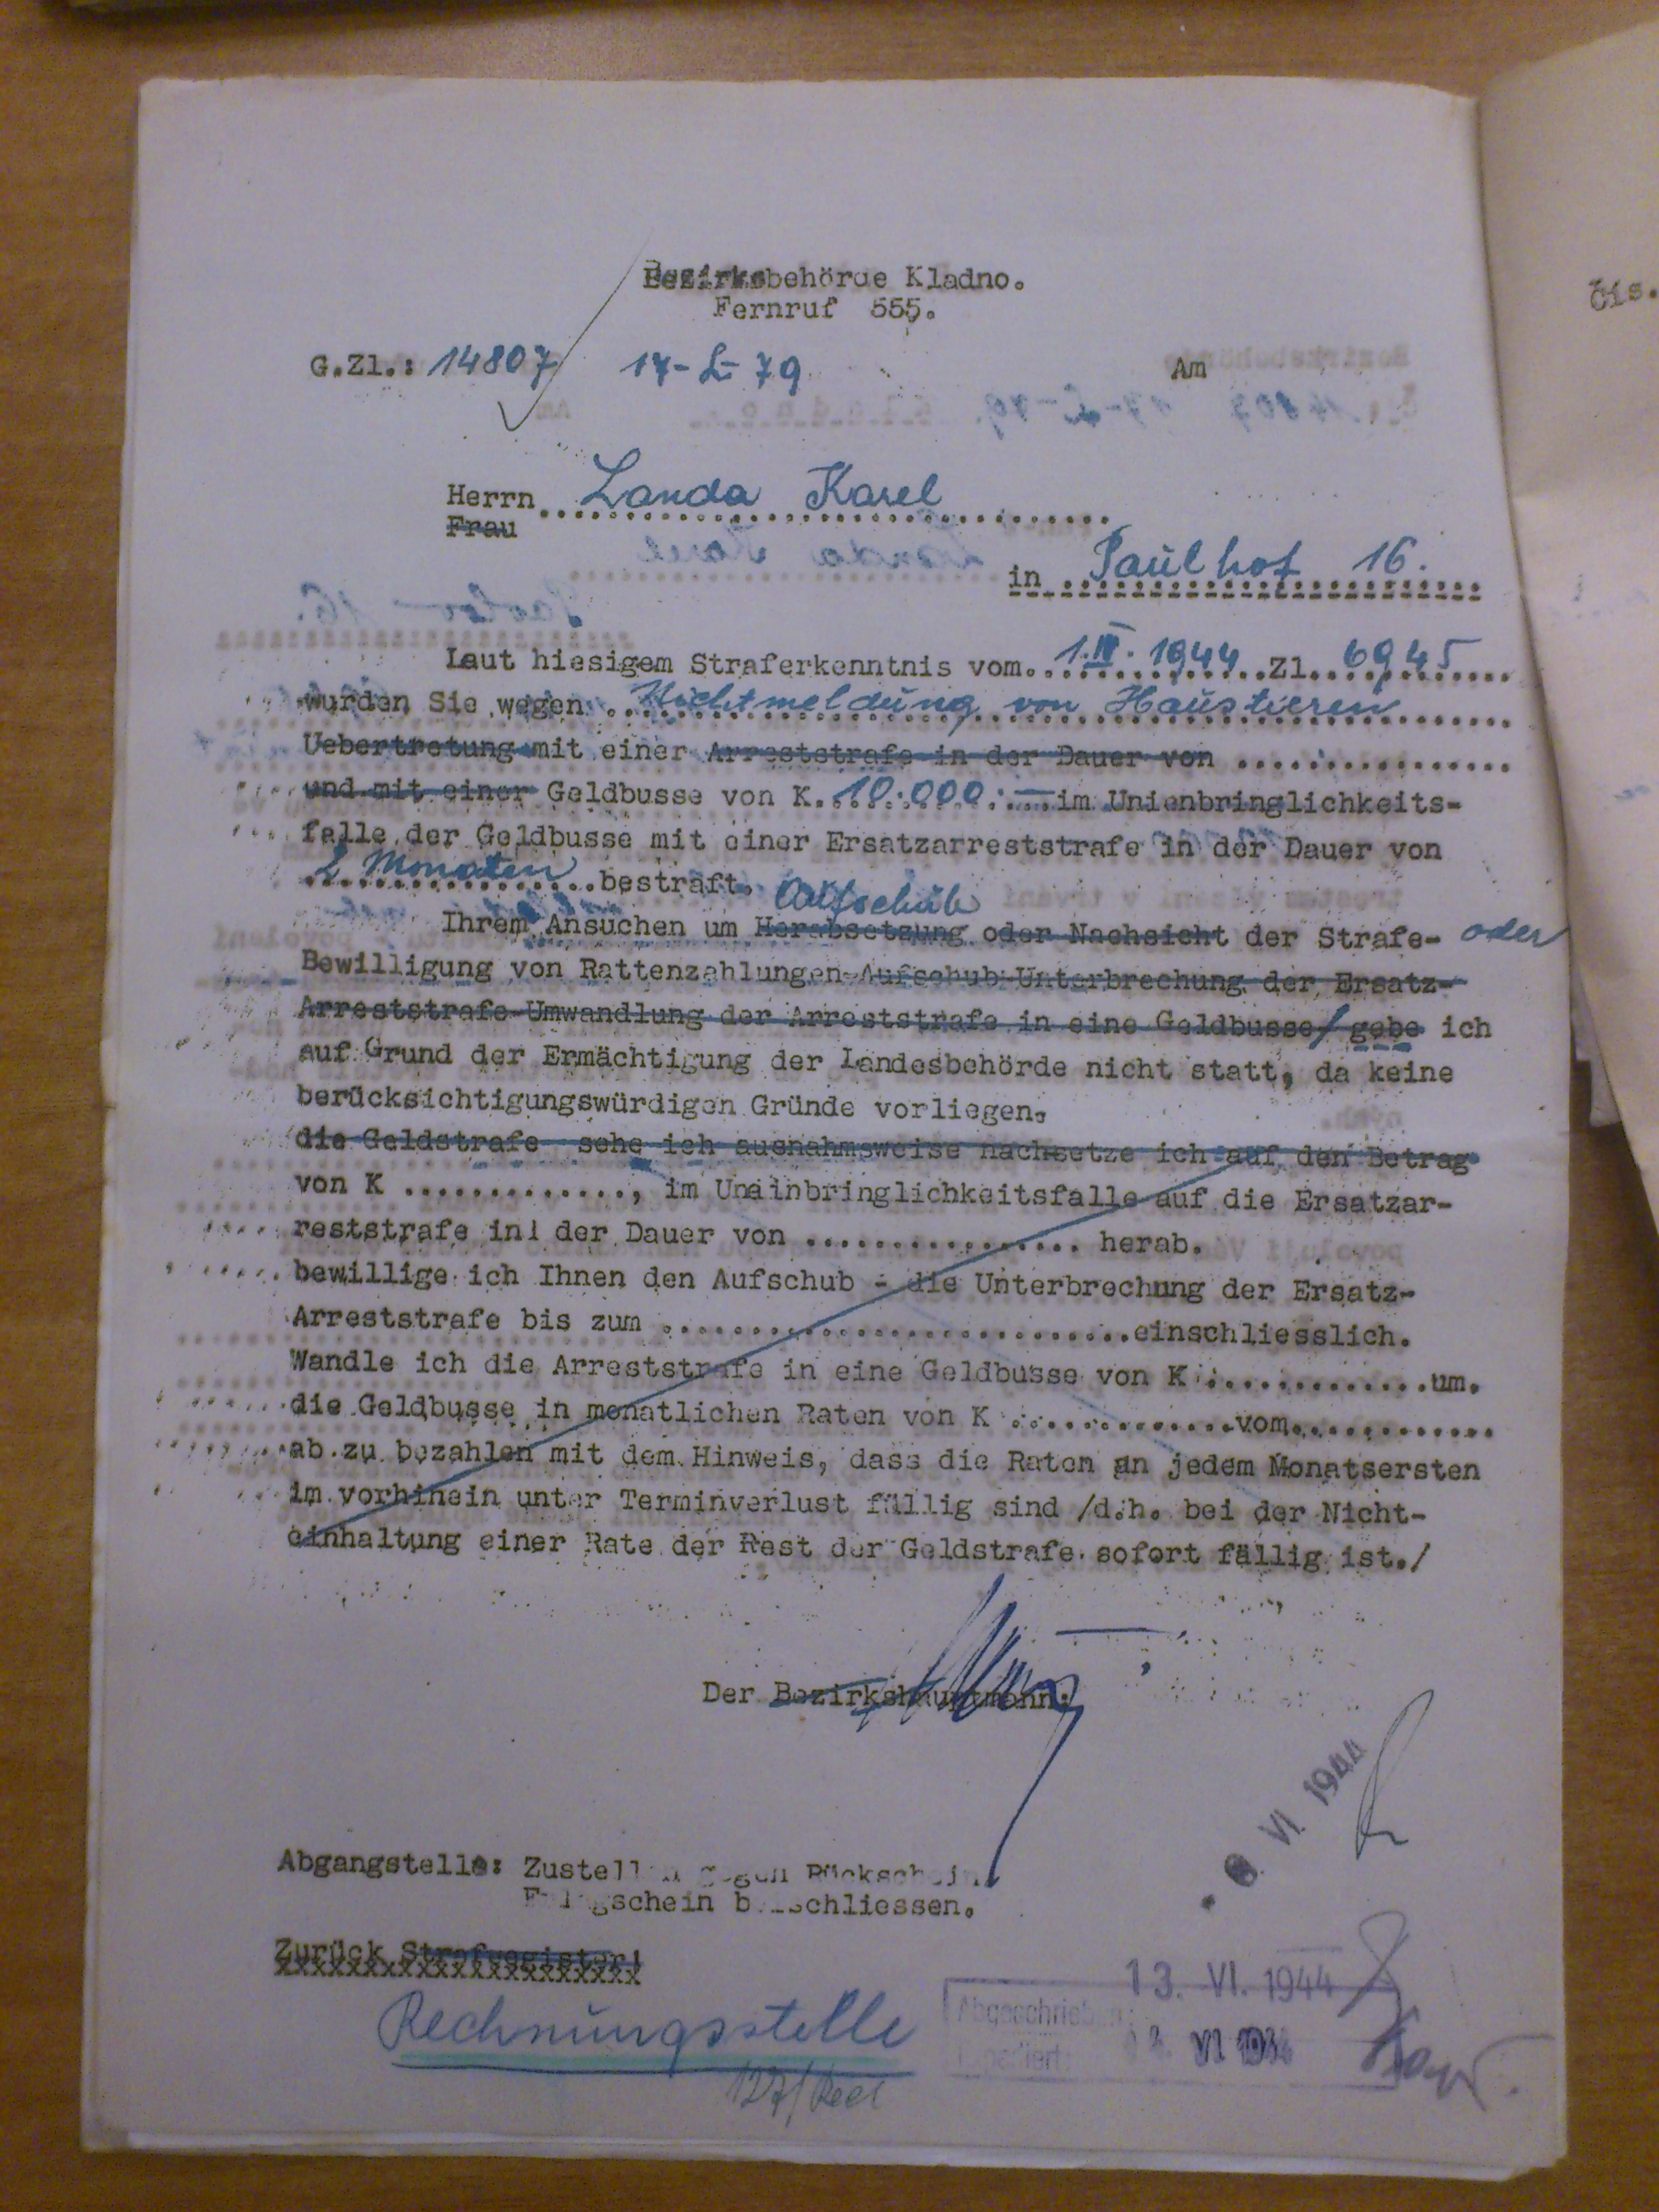 Bezirksbehörde Kladno.
Fernruf 555.
G.Zl.: 14807 17-L-79 Am
Herrn Landa Karel
Frau
in Paulhof 16.
Laut hiesigem Straferkenntnis vom 1.IV.1944 Zl. 6945
wurden Sie wegen Nichtmeldung von Haustieren
Uebertretung mit einer Arreststrafe in der Dauer von ................
und mit einer Geldbusse von K. 10.000.— im Unienbringlichkeits-
falle der Geldbusse mit einer Ersatzarreststrafe in der Dauer von
2 Monaten bestraft.
Aufschub
Ihrem Ansuchen um Herabsetzung oder Nachsicht der Strafe- oder
Bewilligung von Rattenzahlungen-Aufschub-Unterbrechung der Ersatz-
Arreststrafe-Umwandlung der Arreststrafe in eine Geldbusse/ gebe ich
auf Grund der Ermächtigung der Landesbehörde nicht statt, da keine
berücksichtigungswürdigen Gründe vorliegen.
die Geldstrafe sehe ich ausnahmsweise nach-setze ich auf den Betrag
von K ............., im Uneinbringlichkeitsfalle auf die Ersatzar-
reststrafe in der Dauer von ................ herab.
bewillige ich Ihnen den Aufschub - die Unterbrechung der Ersatz-
Arreststrafe bis zum ...........................einschliesslich.
Wandle ich die Arreststrafe in eine Geldbusse von K .............um.
die Geldbusse in monatlichen Raten von K .............vom............
ab zu bezahlen mit dem Hinweis, dass die Raten an jedem Monatsersten
im vorhinein unter Terminverlust fällig sind /d.h. bei der Nicht-
einhaltung einer Rate der Rest der Geldstrafe sofort fällig ist./
Der Bezirkshauptmann:
VI 1944
Abgangstelle: Zustellen gegen Rückschein
schliessen.
Zurück Strafregister!
13. VI. 1944
Rechnungsstelle
Abgeschrieben:
VI
127/